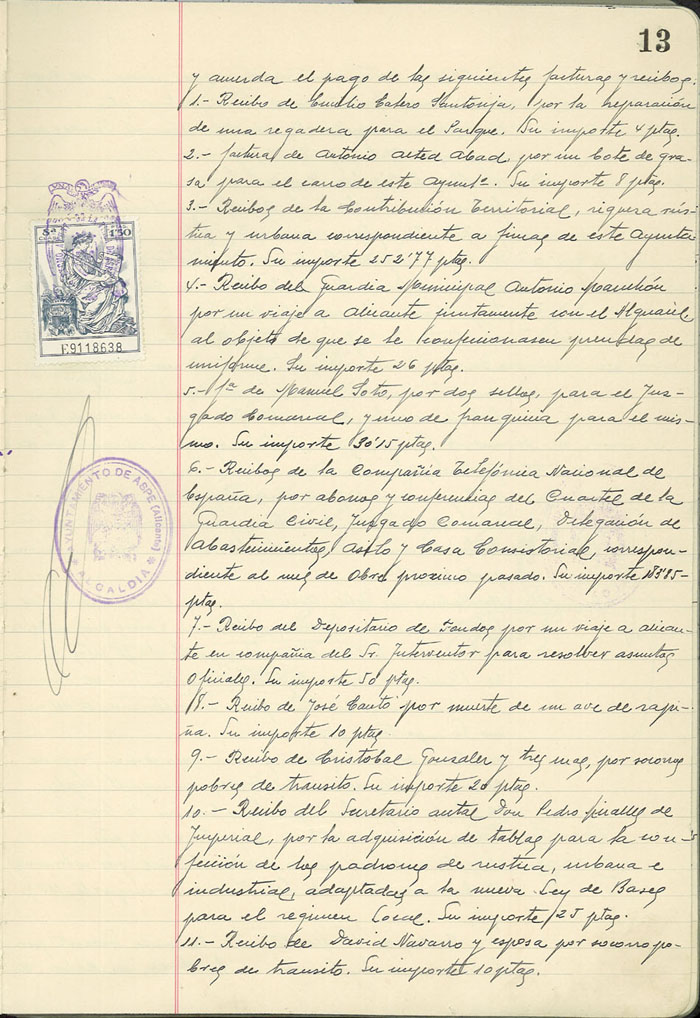 13
y acuerda el pago de las siguientes facturas y recibos.
1.- Recibo de Emilio Catero Santonja, por la reparación
de una regadera para el Parque. Su importe 4 ptas.
2.- factura de Antonio Alted Abad por un bote de gra-
sa para el carro de este Ayuntº. Su importe 8 ptas.
3.- Recibos de la Contribución Territorial, riqueza rús-
tica y urbana correspondiente a fincas de este Ayunta-
miento. Su importe 252'77 ptas.
4.- Recibo del Guardia Municipal Antonio
por un viaje a Alicante juntamente con el Alguacil
al objeto de que se le confeccionasen prendas de
uniforme. Su importe 26 ptas.
5.- fª de Manuel Soto, por dos sellos, para el Juz-
gado Comarcal, y uno de franquicia para el mis-
mo. Su importe 30'15 ptas.
6.- Recibos de la Compañia Telefónica Nacional de
España, por abonos y conferencias del Cuartel de la
Guardia Civil, Juzgado Comarcal, Delegación de
Abastecimientos, Asilo y Casa Consistorial, correspon-
diente al mes de proximo pasado. Su importe
ptas.
7.- Recibo del Depositario de Fondos por un viaje a Alican-
te en compañia del Sr. Interventor para resolver asuntos
oficiales. Su importe 50 ptas.
8.- Recibo de José Cantó por muerte de un ave de rapi-
ña. Su importe 10 ptas
9.- Recibo de Cristobal Gonzalez y tres mas, por socorros
pobres de transito. Su importe 20 ptas.
10.- Recibo del Secretario actal Don Pedro Miralles de
Imperial, por la adquisición de tablas para la con-
fección de los padrones de rustica, urbana e
industrial, adaptadas a la nueva Ley de Bases
para el regimen Local. Su importe 25 ptas.
11.- Recibo de David Navarro y esposa por socorro po-
bres de transito. Su importe 10 ptas.
5ª
1'50
E9118638
AYUNTAMIENTO DE ASPE (Alicante)
ALCALDIA